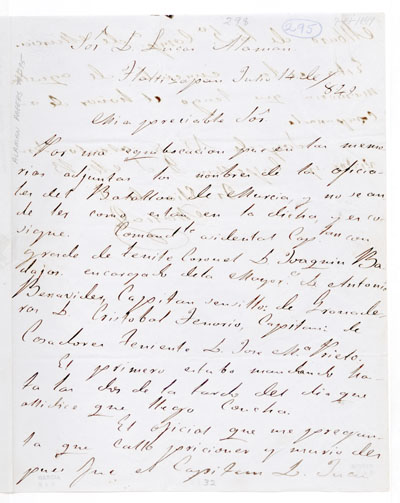 295
295
Sor. D. Lucas Alaman
Julio 14 de
1849
Mi apreciable Sor.
Por una equibocacion puse en las memo
rias adjuntas los nombres de los oficia
les del Batallon de Murcia, y no se an
de ler como estan en la dicha, y es co
sigue. Comandte. accidental Capitan con
grado de tenite. Coronel D. Joaquin Ba
dajos. encargado de la Mayoria D. Antonio
Benavides, Capitan sensillo de Granade
ros D. Cristobal Tenorio, Capitan de
Casadores Teniente D. Jose Ma. Prieto.
El primero estubo mandando ha
ta las dos de la tarde del dia que
llego Concha.
El oficial que me pregun
ta que callo pricionero y murio des
pues fue el Capitan D. Juan
32